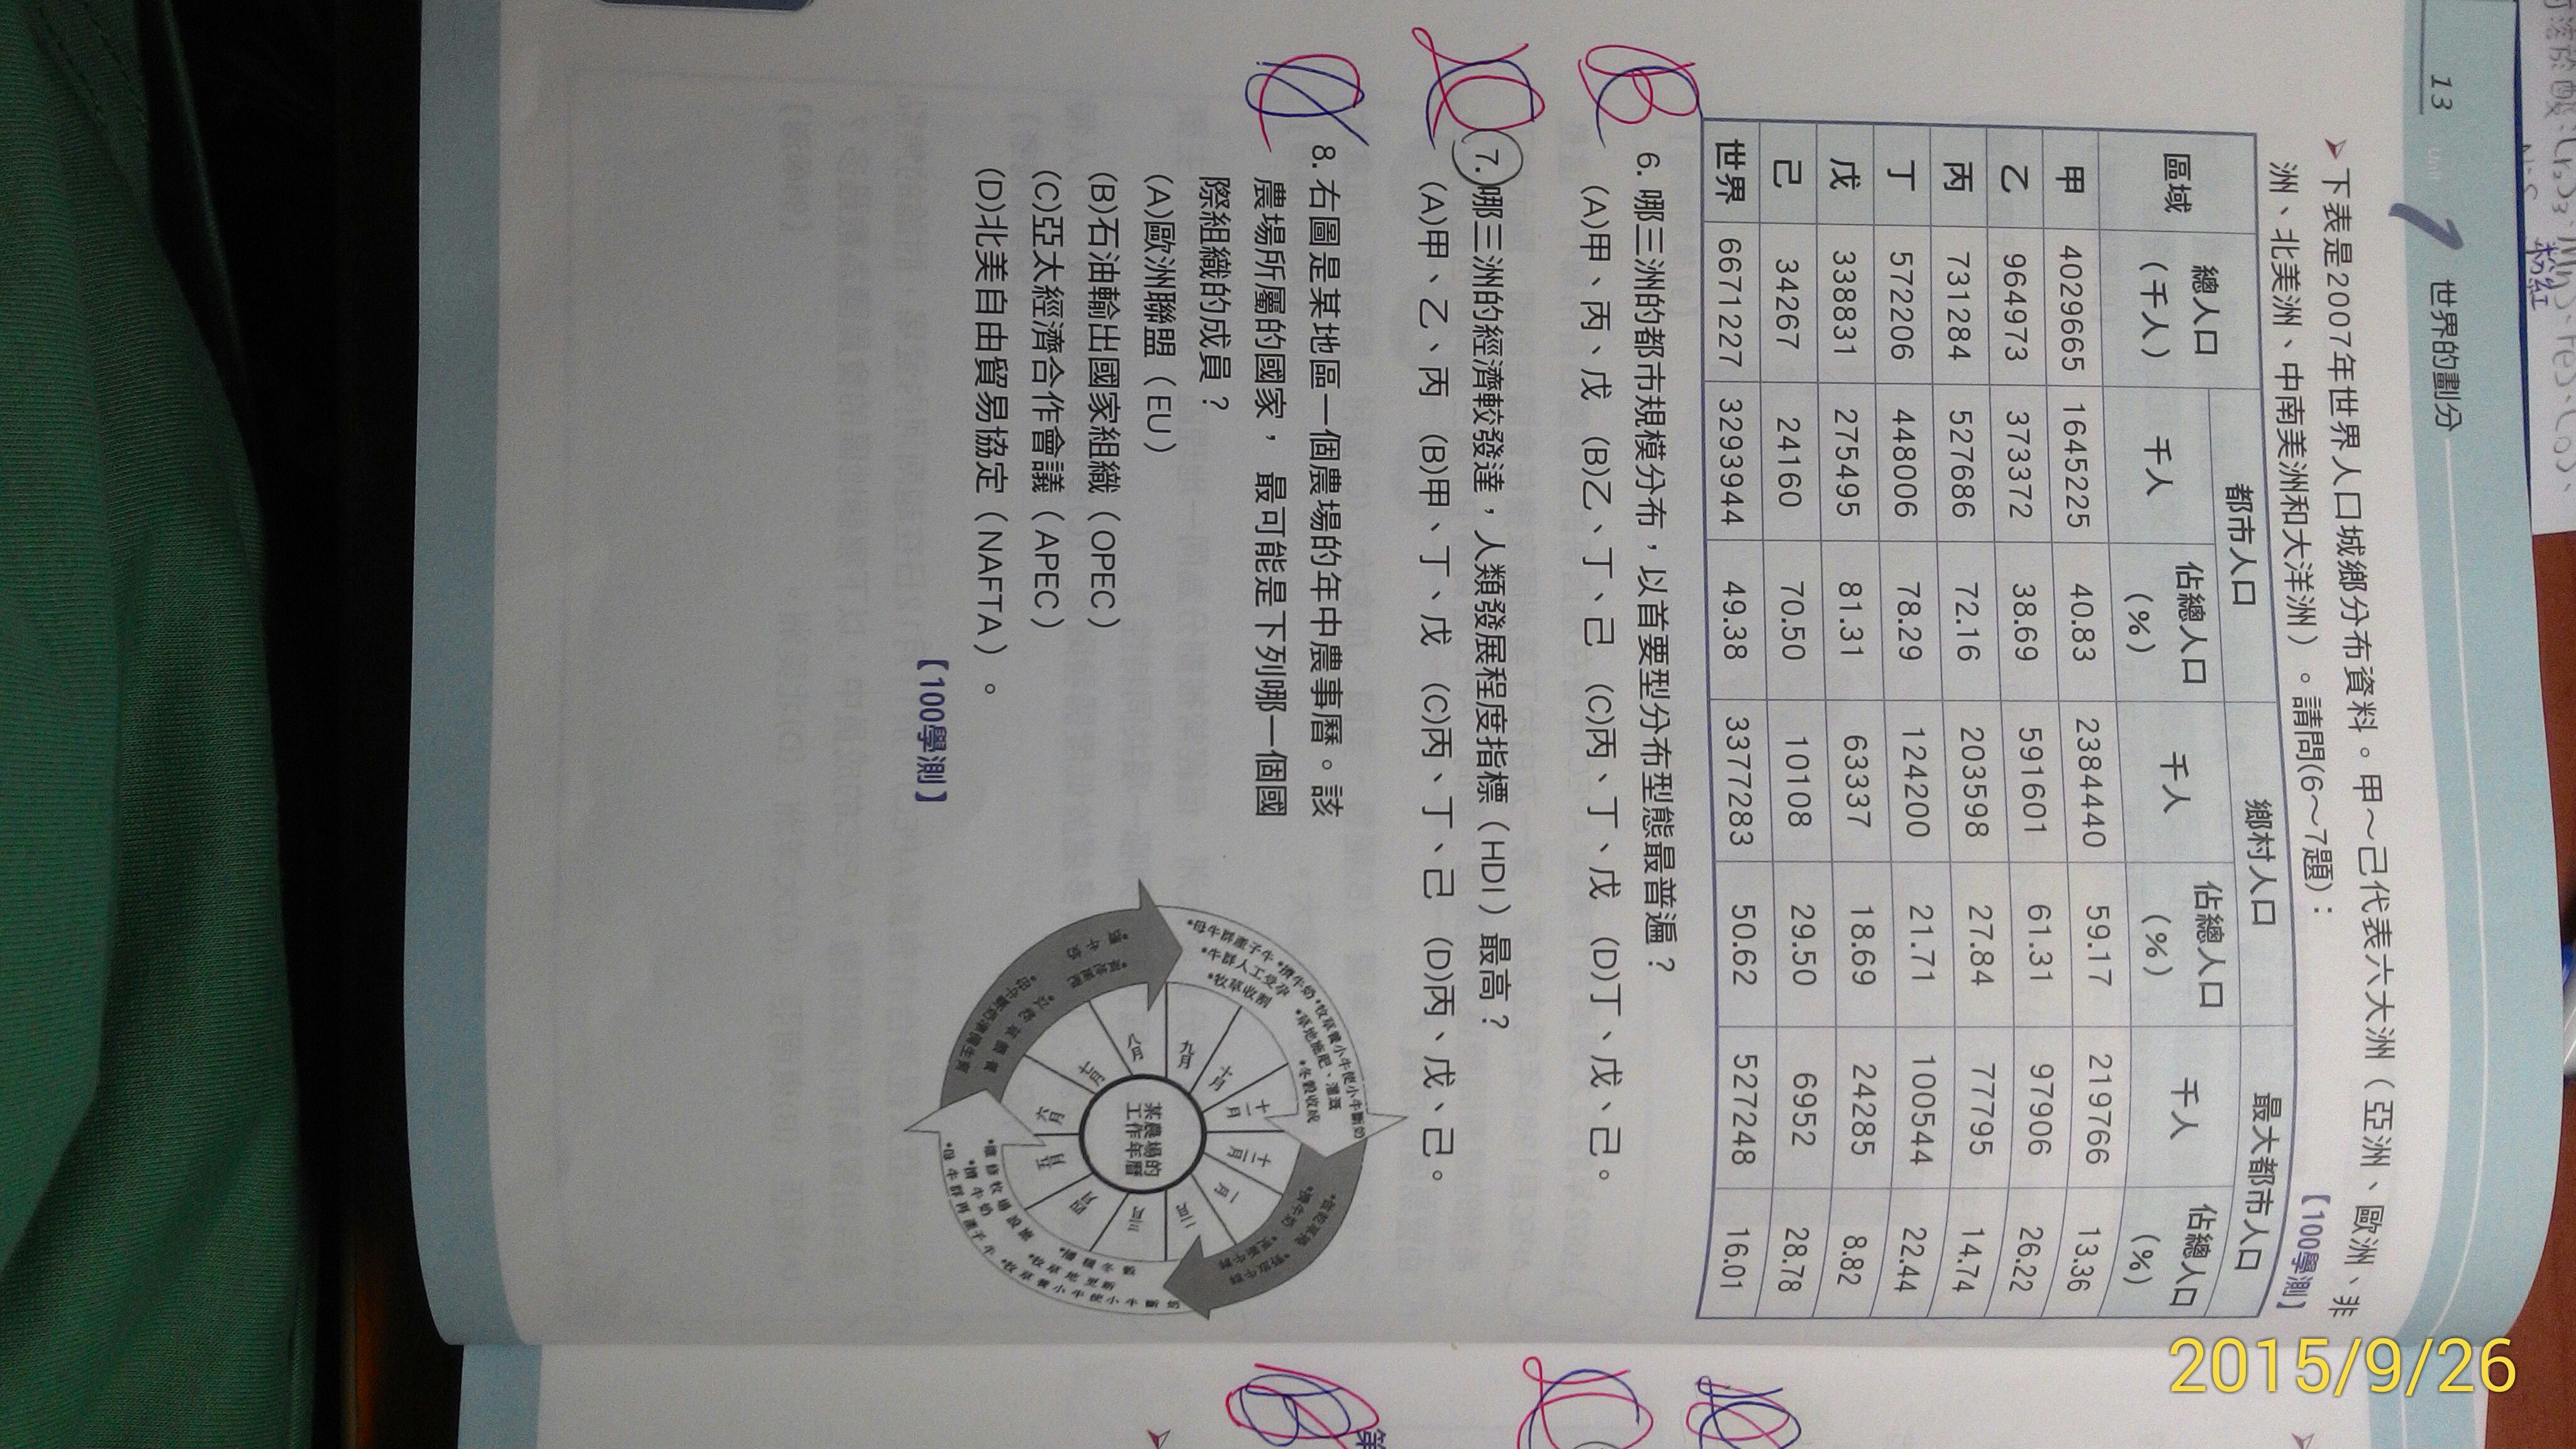 13
1
世界的劃分
下表是2007年世界人口城鄉分布資料。甲～己代表六大洲（亞洲、歐洲、非
洲、北美洲、中南美洲和大洋洲）。請問(6～7題)：
【100學測】
區域 總人口（千人） 都市人口 鄉村人口 最大都市人口
千人 佔總人口（%） 千人 佔總人口（%） 千人 佔總人口（%）
甲 4029665 1645225 40.83 2384440 59.17 219766 13.36
乙 964973 373372 38.69 591601 61.31 97906 26.22
丙 731284 527686 72.16 203598 27.84 77795 14.74
丁 572206 448006 78.29 124200 21.71 100544 22.44
戊 338831 275495 81.31 63337 18.69 24285 8.82
己 34267 24160 70.50 10108 29.50 6952 28.78
世界 6671227 3293944 49.38 3377283 50.62 527248 16.01
6. 哪三洲的都市規模分布，以首要型分布型態最普遍？
(A)甲、丙、戊 (B)乙、丁、己 (C)丙、丁、戊 (D)丁、戊、己。
7. 哪三洲的經濟較發達，人類發展程度指標（HDI）最高？
(A)甲、乙、丙 (B)甲、丁、戊 (C)丙、丁、己 (D)丙、戊、己。
8. 右圖是某地區一個農場的年中農事曆。該
農場所屬的國家，最可能是下列哪一個國
際組織的成員？
(A)歐洲聯盟（EU）
(B)石油輸出國家組織（OPEC）
(C)亞太經濟合作會議（APEC）
(D)北美自由貿易協定（NAFTA）。
【100學測】
某農場的
工作年曆
一月
二月
三月
四月
五月
六月
七月
八月
九月
十月
十一月
十二月
•母牛群產子牛
•擠牛奶
•牛群人工受孕
•牧草收割
•牧草養小牛使小牛斷奶
•草地施肥、灌溉
•冬穀收成
•播種冬穀
•牧草地更新
•牧草養小牛使小牛斷奶
•維修牧場設施
•擠牛奶
•母牛群再產子牛
粉紅
2015/9/26